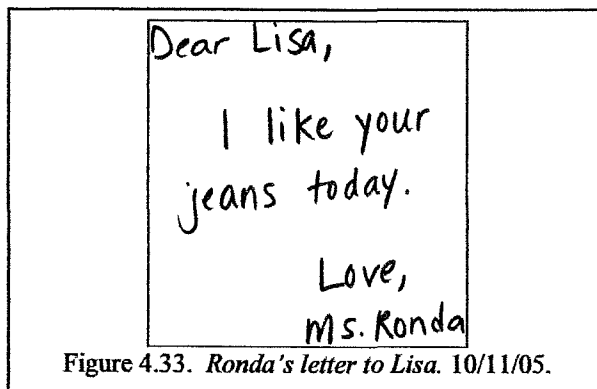 Dear Lisa,
I like your
jeans today.
Love,
Ms. Ronda
Figure 4.33. Ronda's letter to Lisa. 10/11/05.